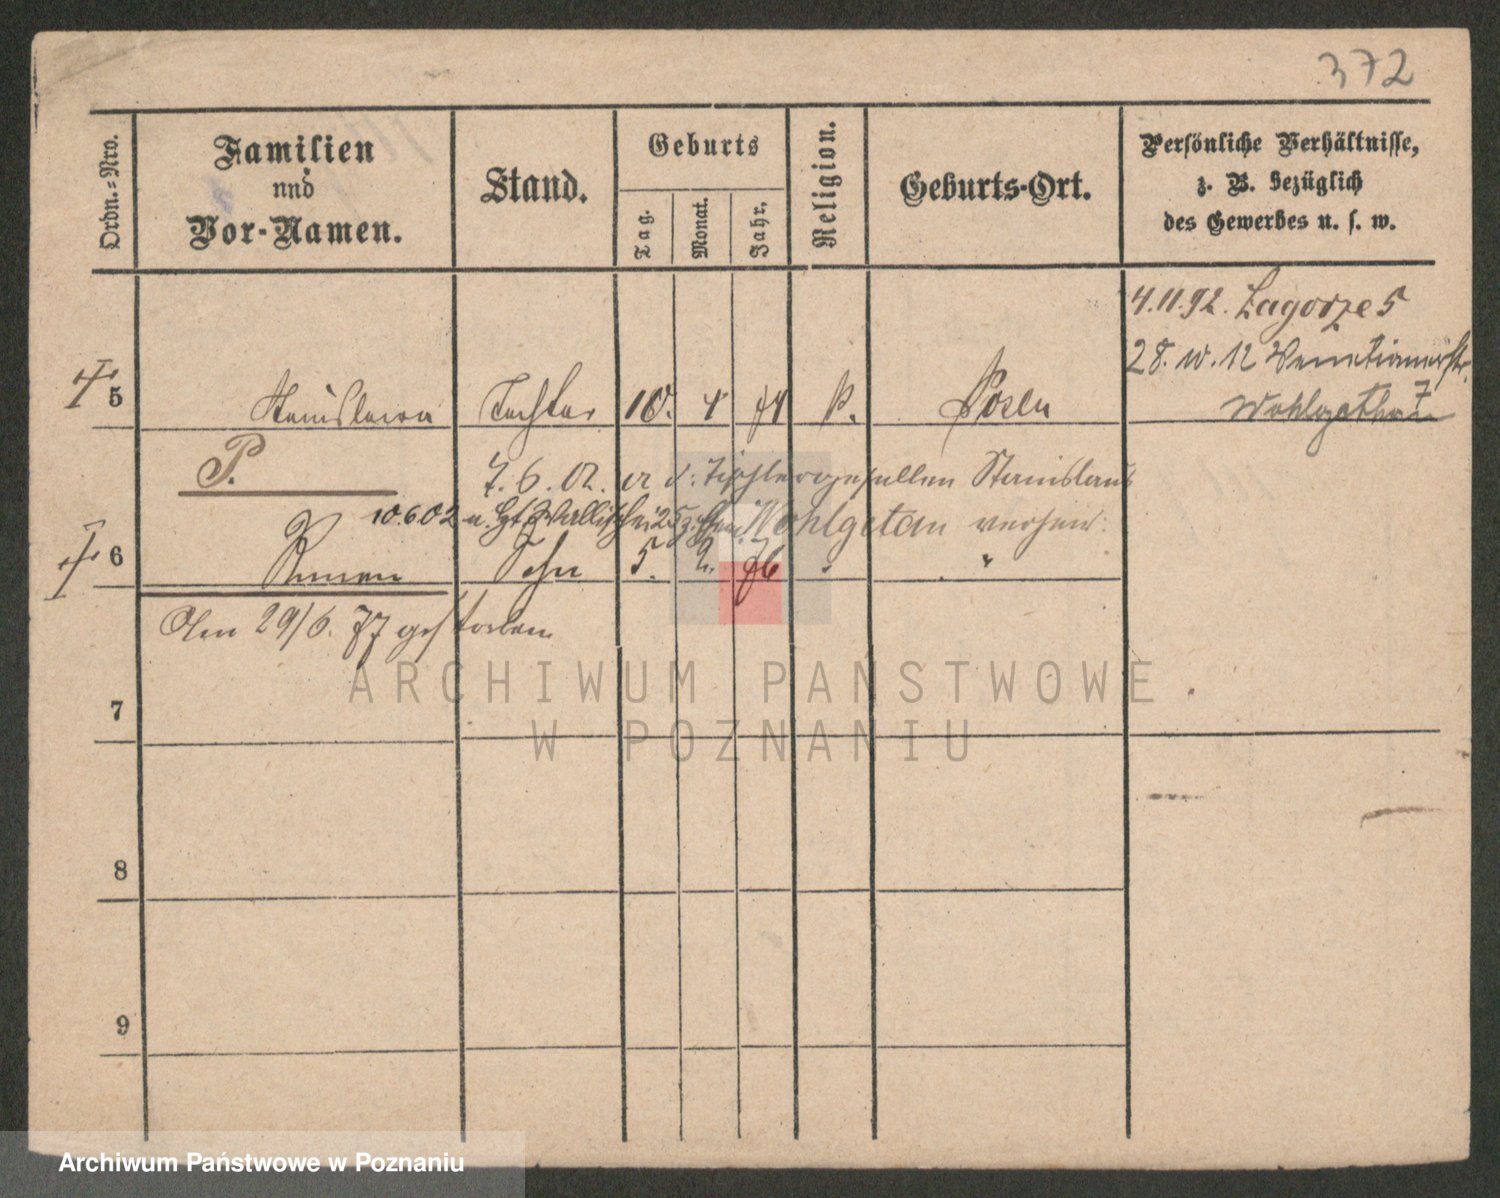 372
Ordn.=Nro.
Familien
und
Vor-Namen.
Stand.
Geburts
Tag.
Monat.
Jahr.
Religion.
Geburts-Ort.
Persönliche Verhältnisse,
z. B. bezüglich
des Gewerbes u. s. w.
4.11.92. Zagorze 5
28. 10. 12 Venetianerstr.
7
5 Stanislawa Tochter 10. 4 74 k. Posen
Wohlgethan
P. 7. 6. 02. a. d. Tischlergesellen Stanislaus
10.6.02 Wallischei 25 Wohlgetan verheir.
6 Sohn 5. 2. 76 " "
Am 29/6. 77 gestorben
7
8
9
ARCHIWUM PAŃSTWOWE
W POZNANIU
Archiwum Państwowe w Poznaniu